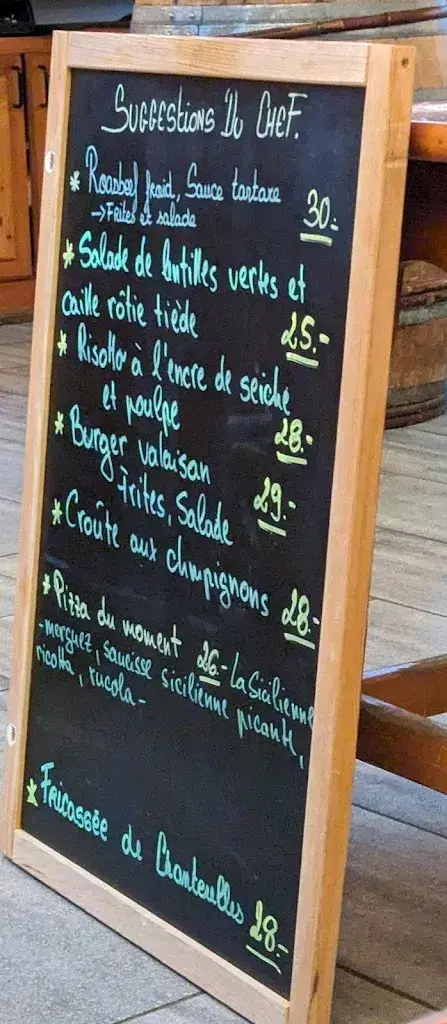 Suggestions Du Chef.
* Roasbeef froid, Sauce tartare
→ Frites et salade 30.-
* Salade de lentilles vertes et
caille rôtie tiède 25.-
* Risotto à l'encre de seiche
et poulpe 28.-
* Burger valaisan
Frites, Salade 29.-
* Croûte aux champignons 28.-
* Pizza du moment 26.- La Sicilienne
-merguez, saucisse sicilienne picante,
ricotta, rucola-
* Fricassée de Chanterelles 28.-